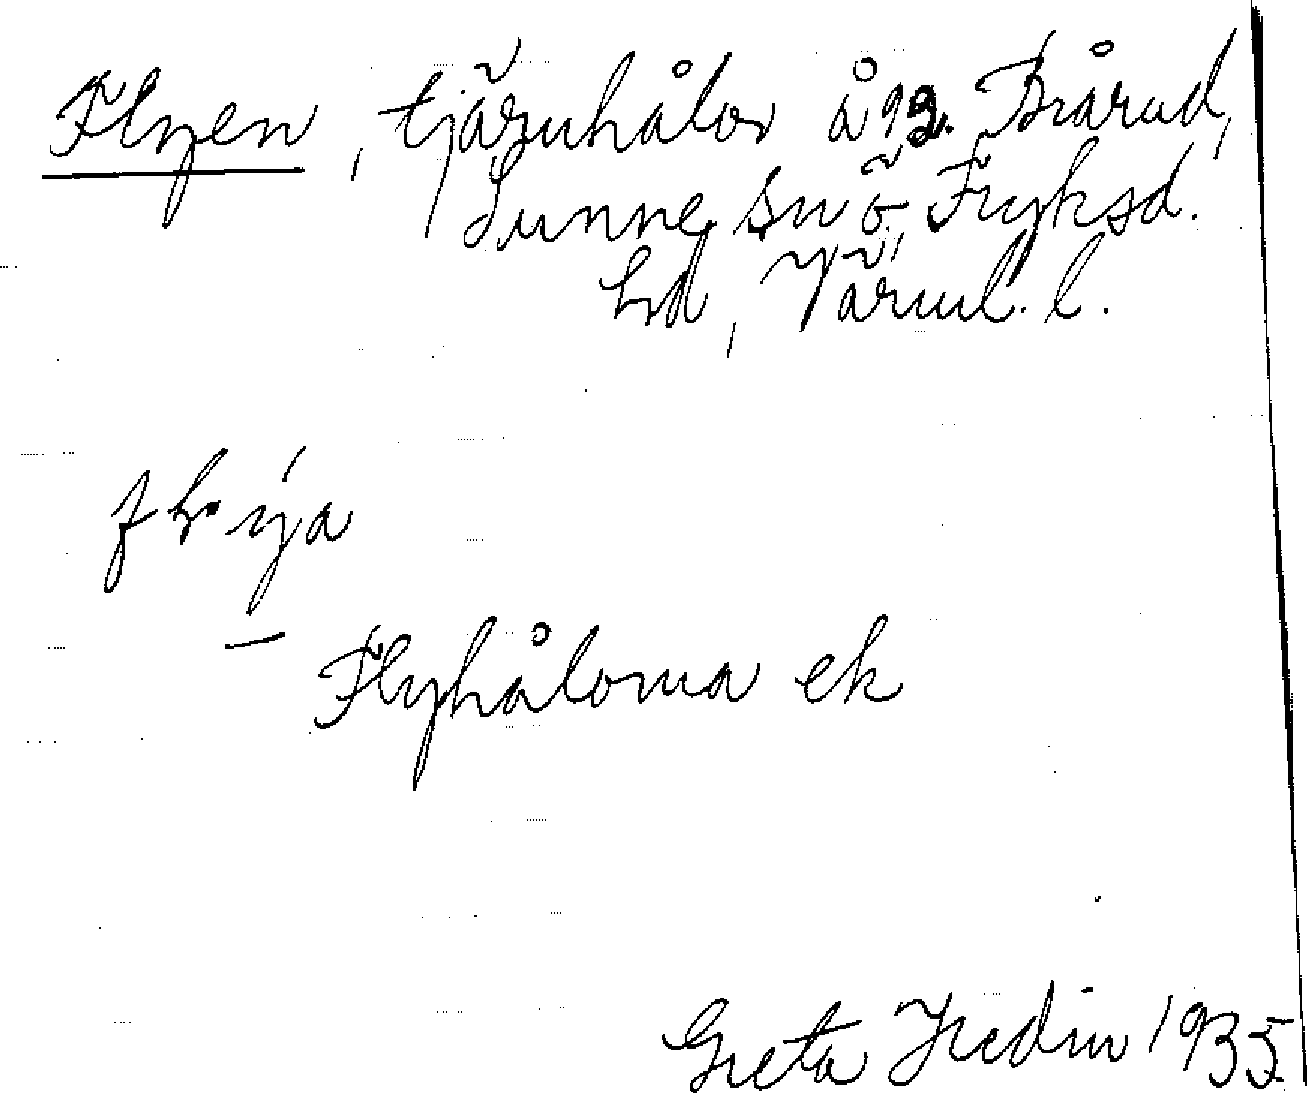 Flyen, tjärnhålor å gg. Brårud,
Sunne sn ö, Fryksd.
hd, Värml. l.
flýa
— Flyhåloma ek
Greta Hedin 1935